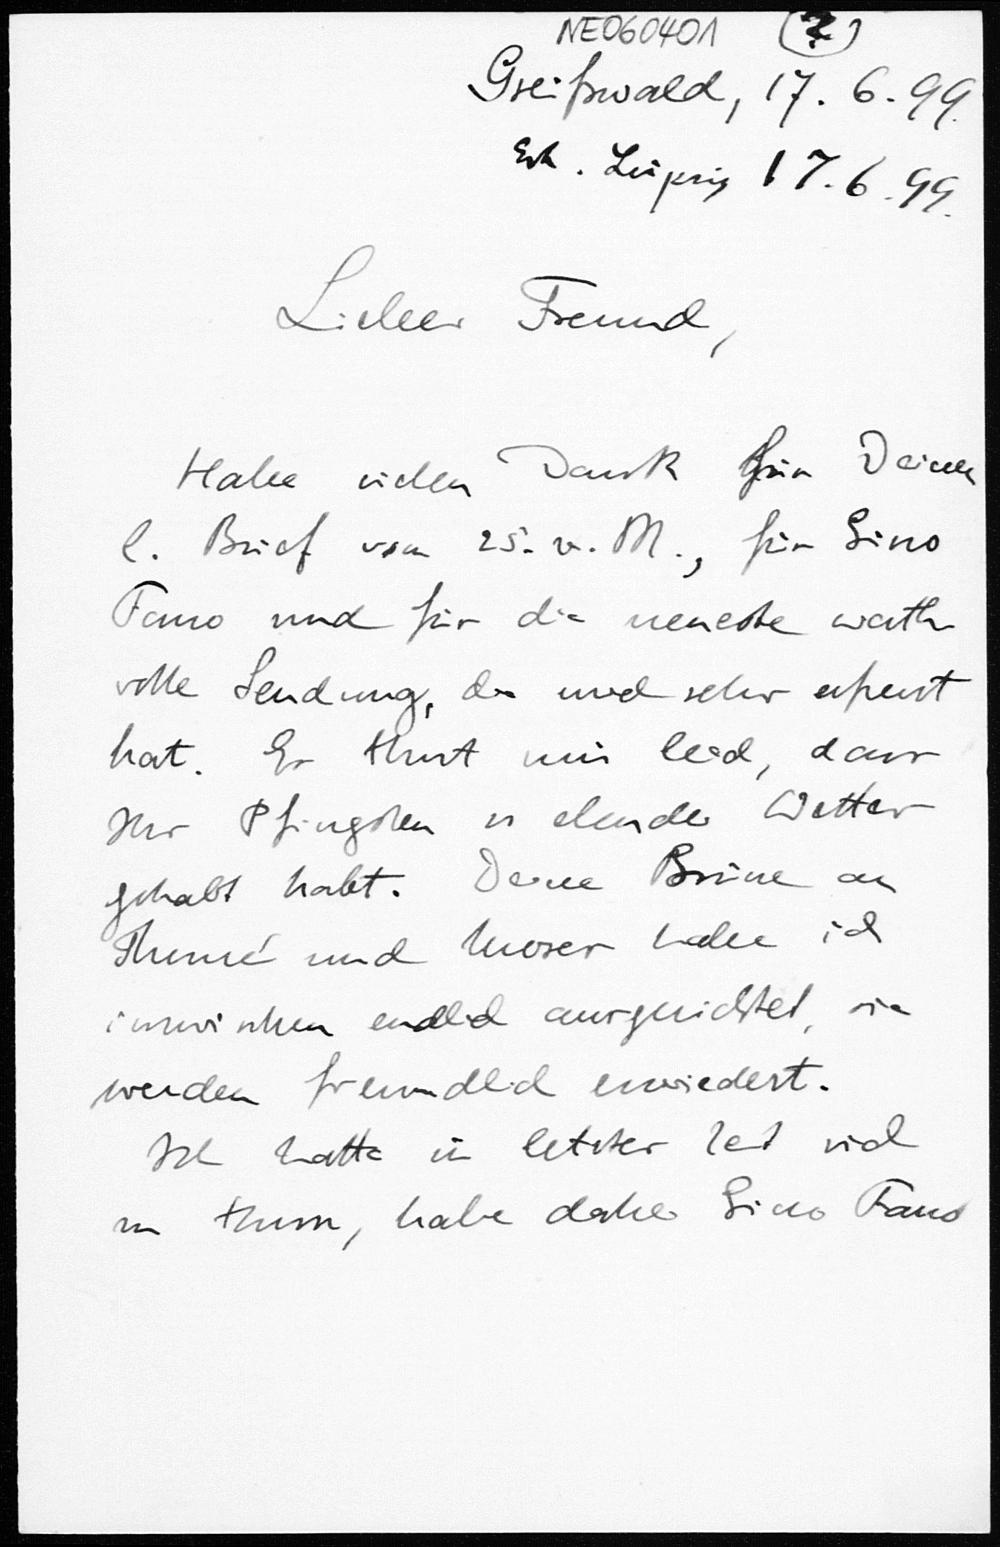 NE060401 (2)
Greifswald, 17. 6. 99.
Erh. Leipzig 17. 6. 99.
Lieber Freund,
Habe vielen Dank für Deinen
l. Brief vom 25. v. M., für Gino
Fano und für die neueste werth
volle Sendung, die mich sehr erfreut
hat. Es thut mir leid, dass
Ihr Pfingsten so elendes Wetter
gehabt habt. Deine Grüsse an
Thomé und Moser habe ich
inzwischen endlich ausgerichtet, sie
werden freundlich erwiedert.
Ich hatte in letzter Zeit viel
zu thun, habe daher Gino Fano